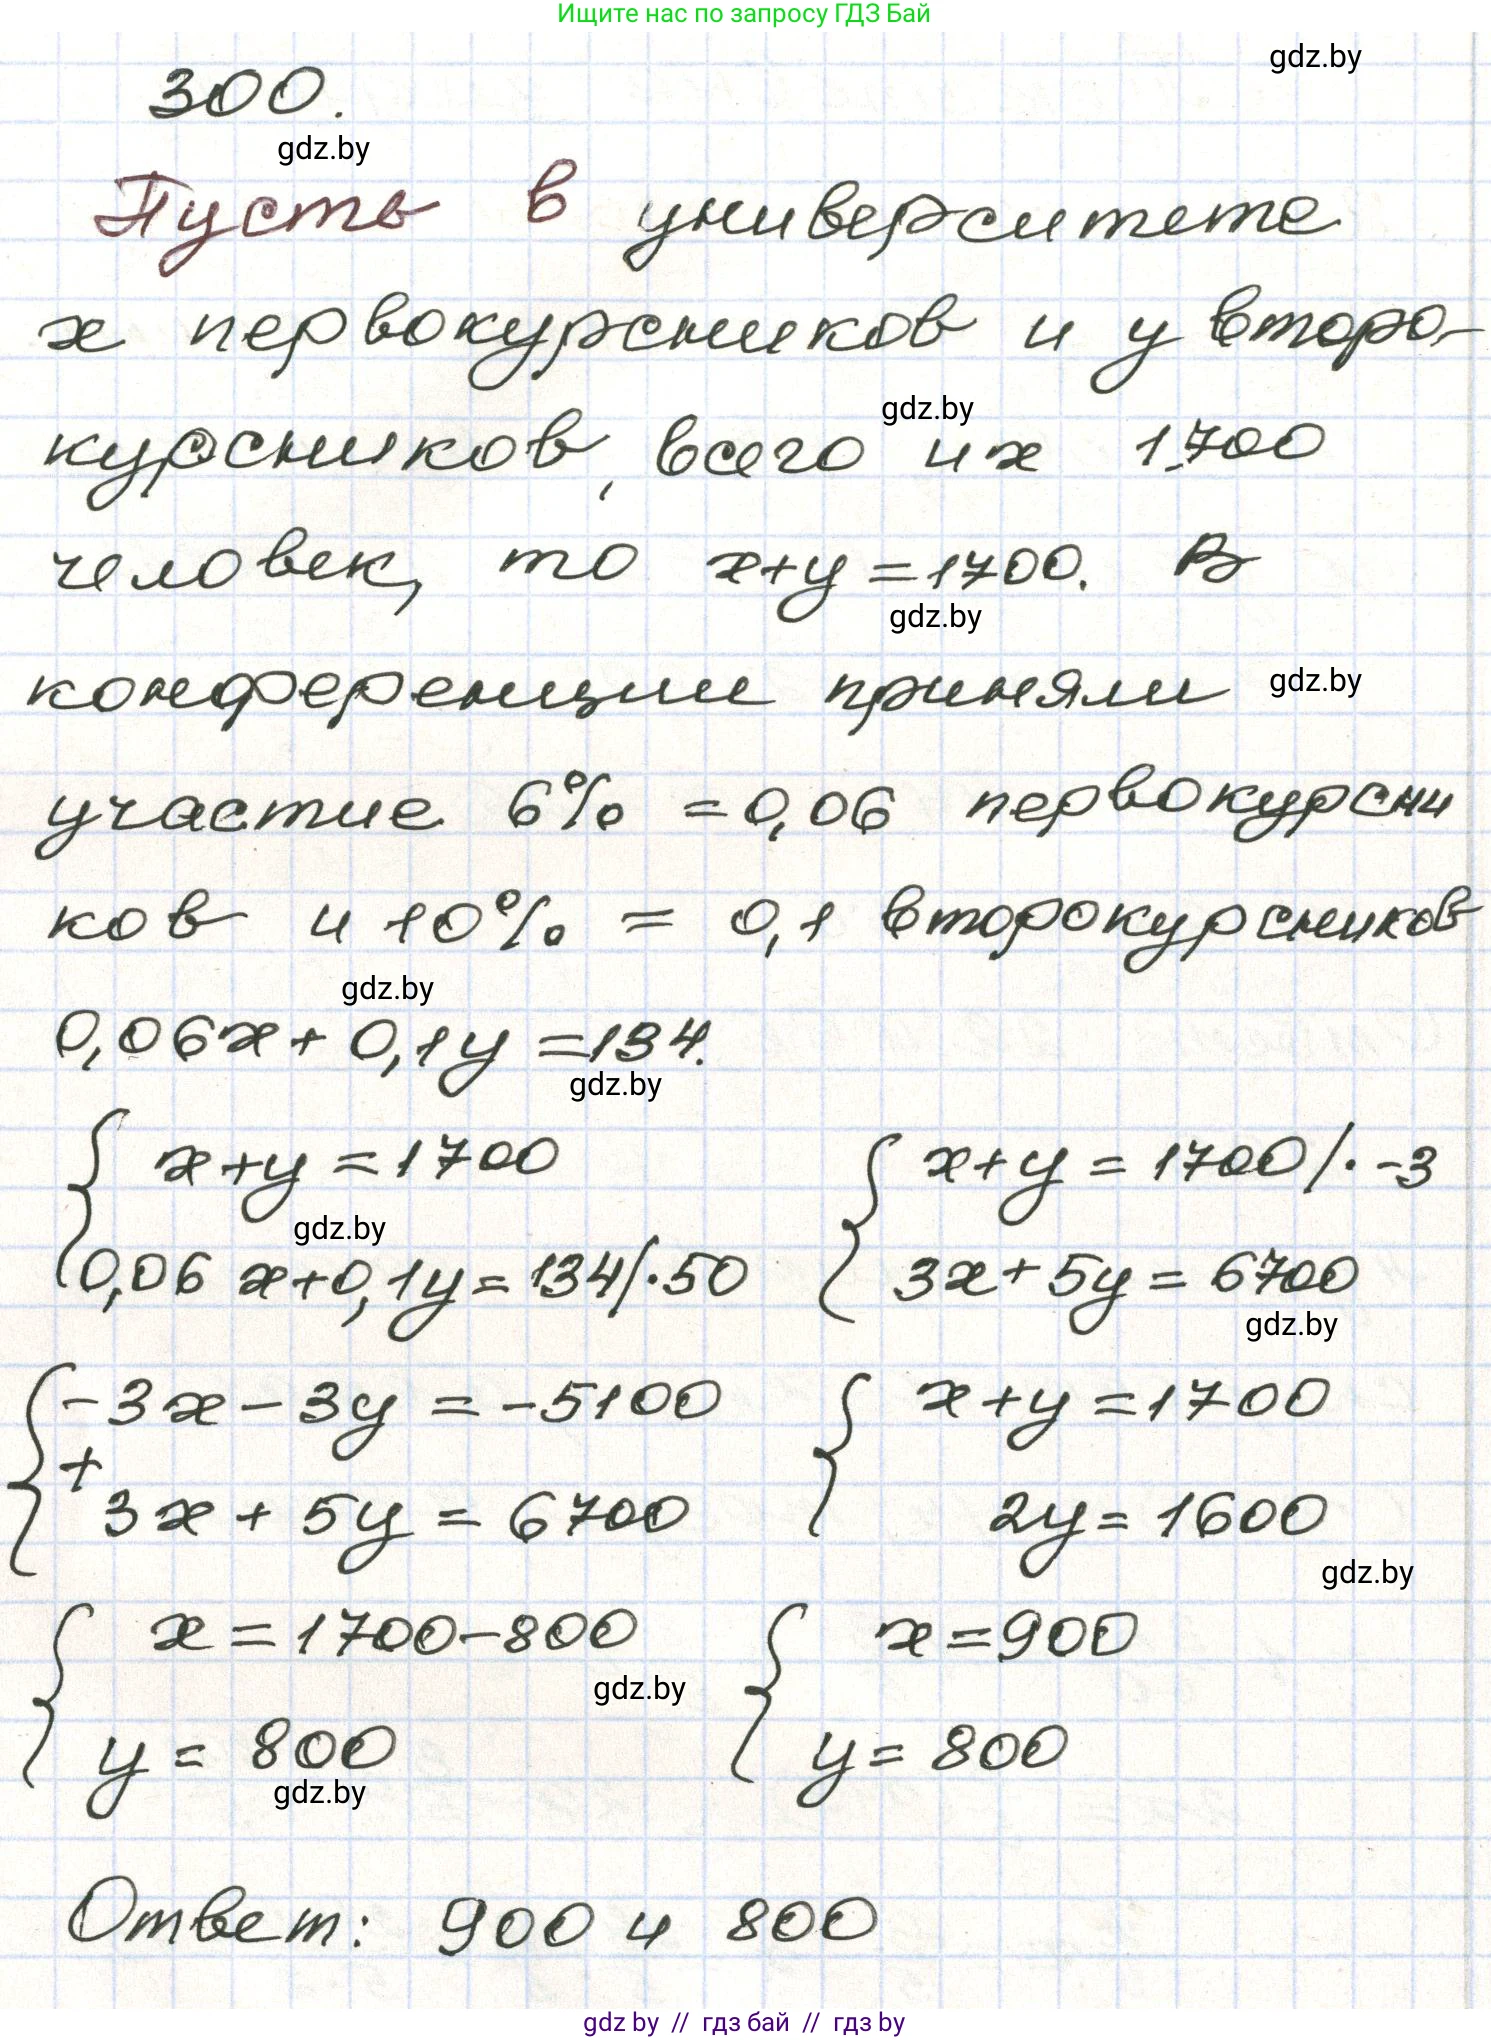 Ищите нас по запросу ГДЗ Бай
gdz.by
300.
gdz.by
Пусть в университете
x первокурсников и y второ-
gdz.by
курсников, всего их 1700
человек, то x+y=1700. В
gdz.by
конференции приняли
gdz.by
участие 6% =0,06 первокурсни
ков и 10% = 0,1 второкурсников
gdz.by
0,06x+0,1y=134.
gdz.by
{ x+y=1700 { x+y=1700/·-3
gdz.by
0,06x+0,1y=134/·50 3x+5y=6700
gdz.by
{ -3x-3y=-5100 { x+y=1700
+
3x+5y=6700 2y=1600
gdz.by
{ x=1700-800 { x=900
gdz.by
y=800 y=800
gdz.by
Ответ: 900 и 800
gdz.by // гдз бай // гдз by